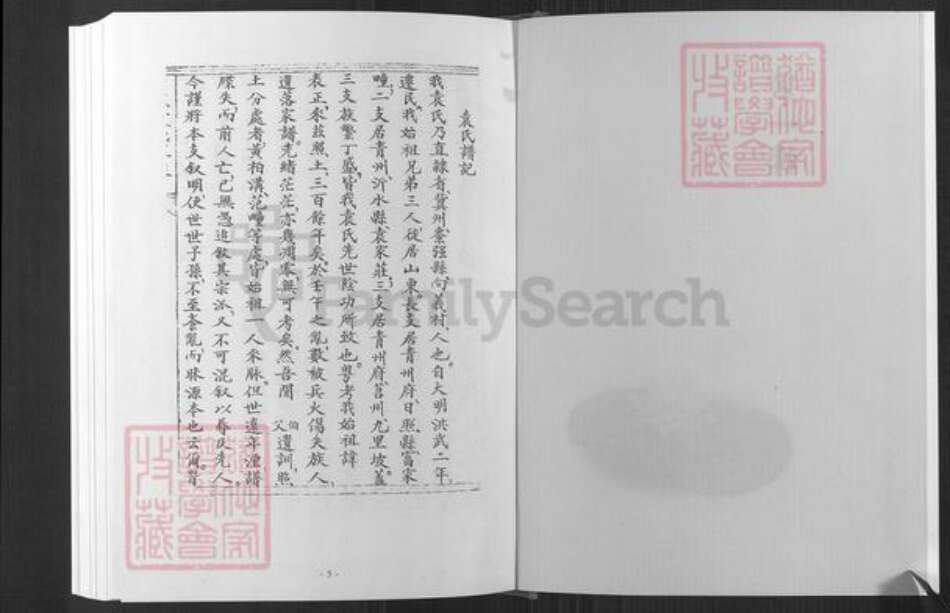 袁氏譜記
我袁氏乃直隸省、冀州、棗强縣、向義村、人也。自大明洪武二年、
遷民、我始祖兄弟三人、徙居山東、長支居青州府、日照縣、富家
疃、二支居青州、沂水縣、袁家莊、三支居青州府、莒州、九里坡。蓋
三支族繁丁盛、皆我袁氏先世陰功所致也。粤考我始祖諱
表正、來茲照土、三百餘年矣、於壬午之亂、數被兵火傷失族人、
遺落家譜。先緒茫茫、亦幾凋零、無可考矣。然吾聞 伯父遺訓、照
土分處者、黄柏溝、范疃等處、皆始祖一人來脉。但世遠年湮、譜
牒失、而前人亡、已無憑追敘其宗派、又不可混敘以辱及先人。
今謹將本支叙明、使世世子孫、不至紊亂、而昧源本也云爾。昔
- 5 -
FamilySearch
猶他家譜學會收藏
猶他家譜學會收藏